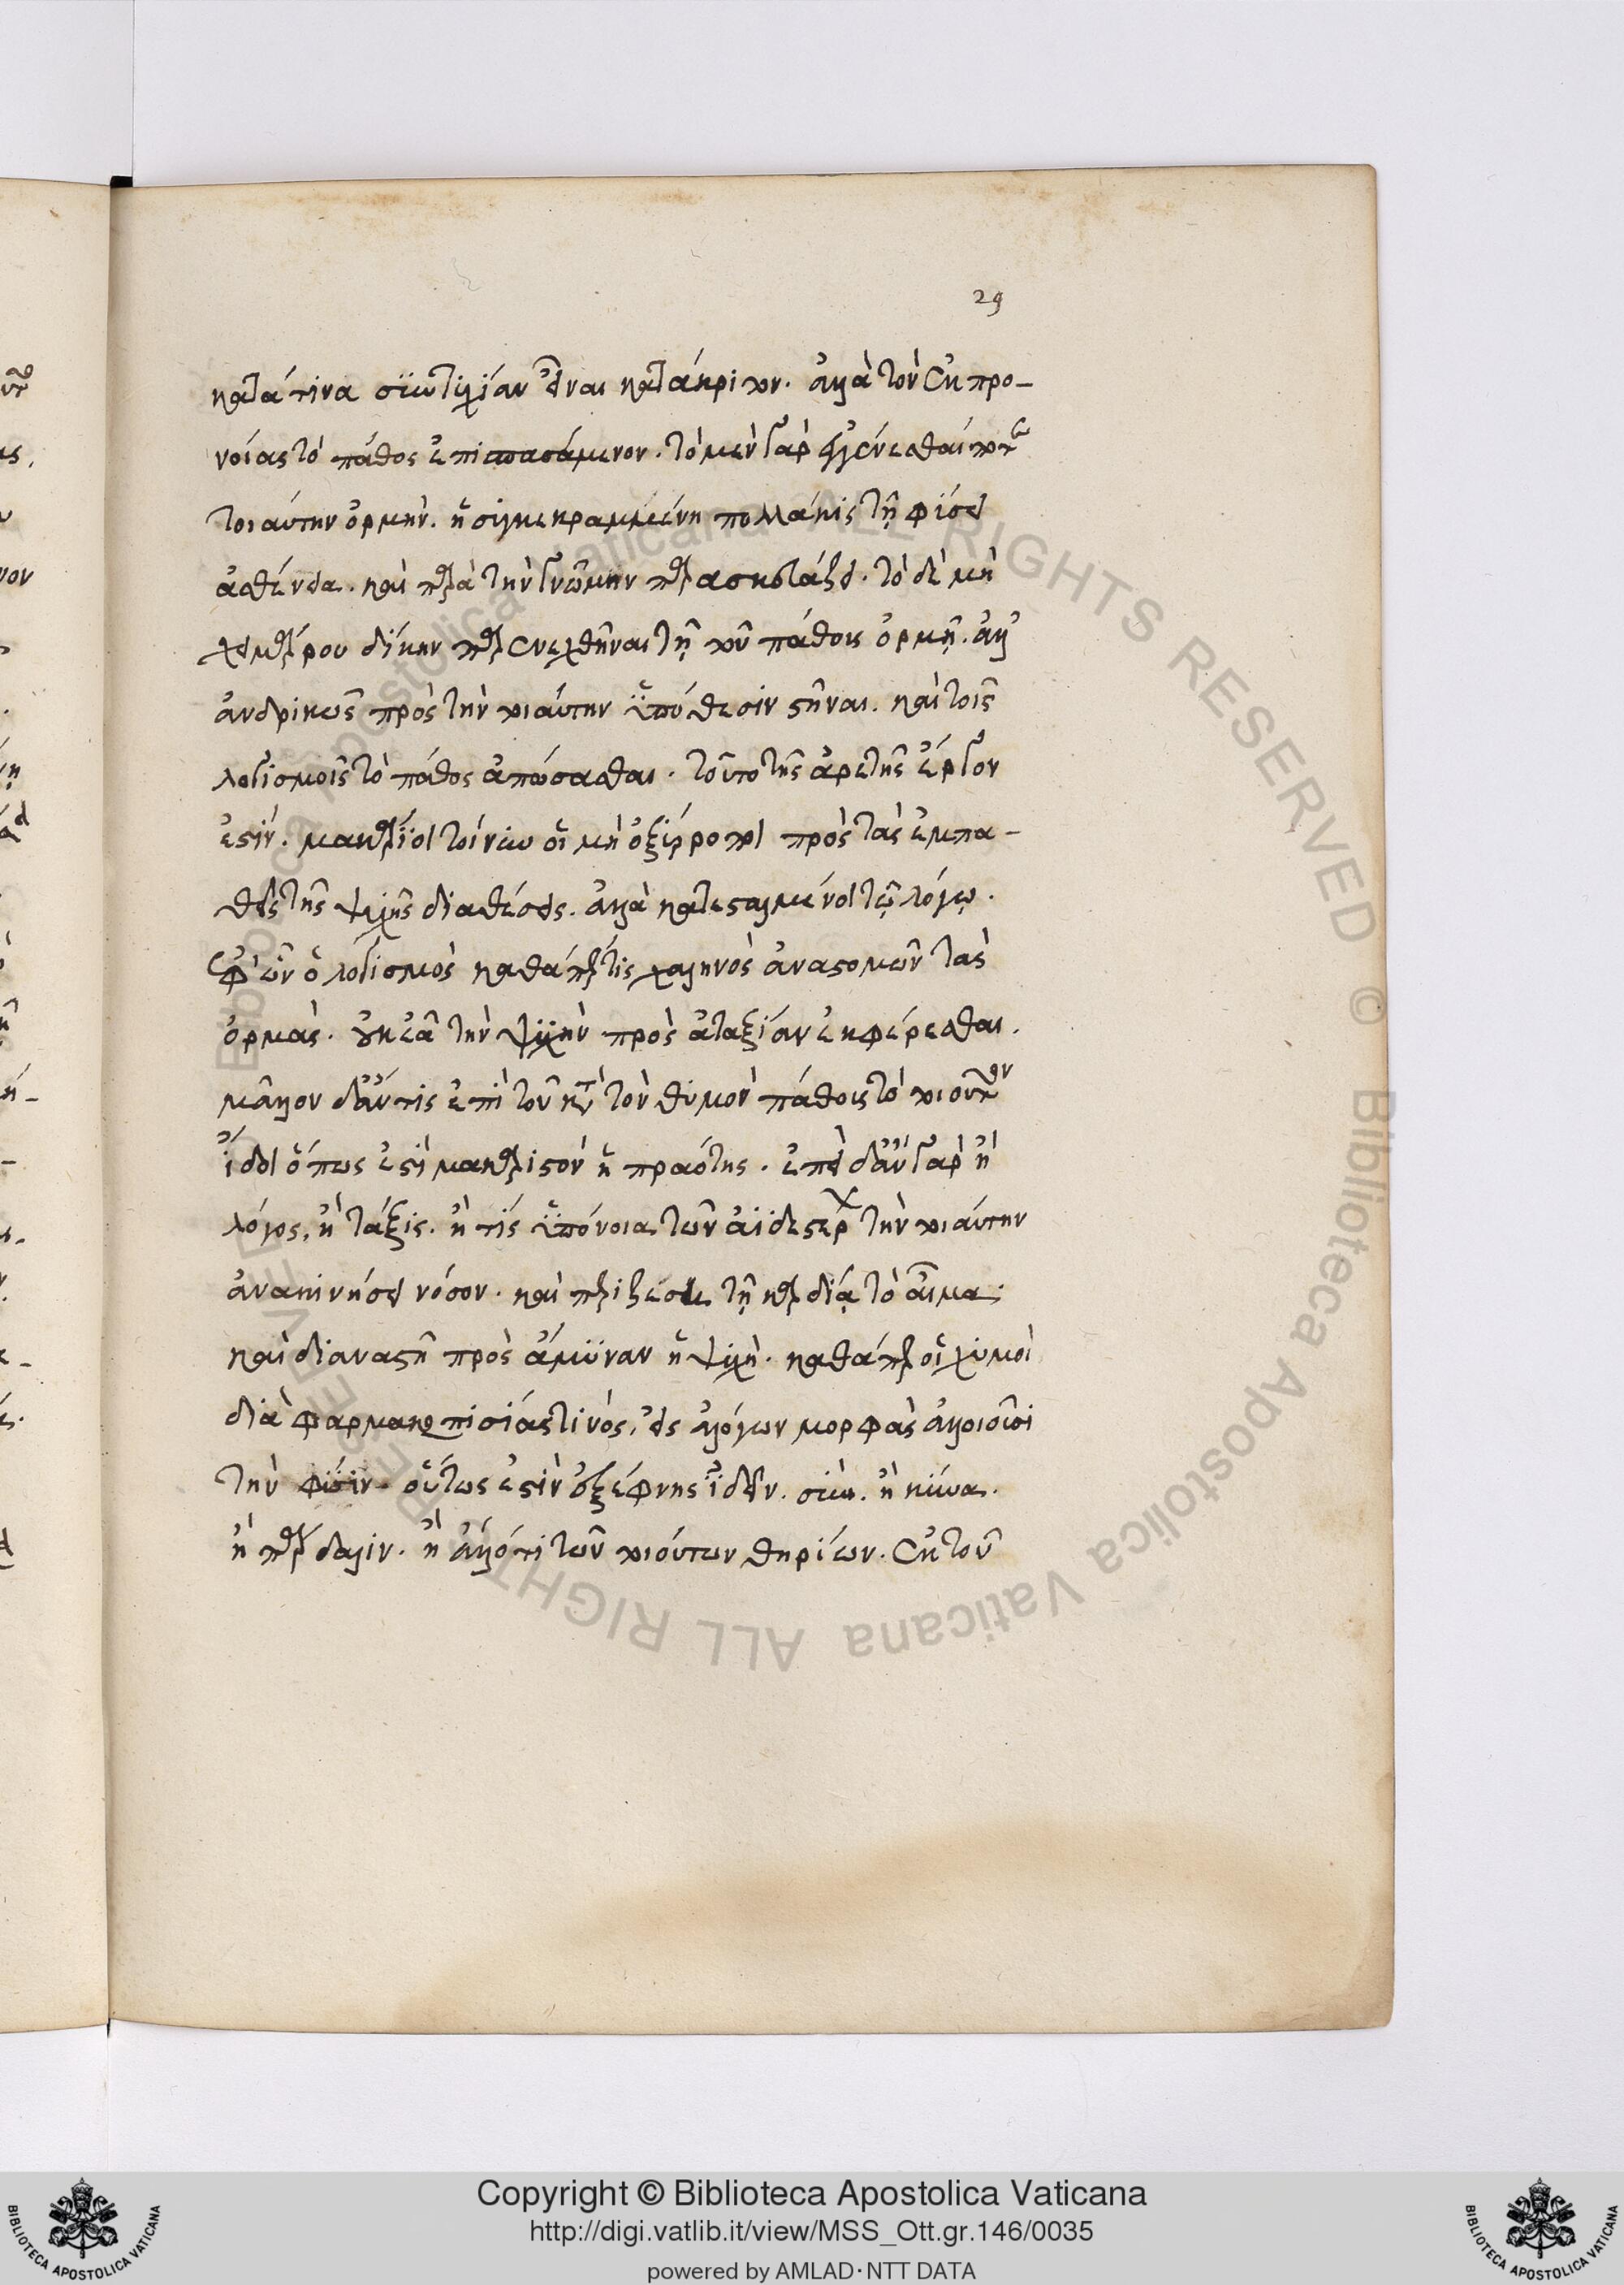 29
κατά τινα συντυχίαν εἶναι κατάκριτον. ἀλλὰ τὸν ἐκ προ-
νοίας τὸ πάθος ἐπισπασάμενον. τὸ μὲν γὰρ ἐγγενέσθαι ποτὲ
τοιαύτην ὁρμὴν. ἡ συγκεκραμμένη πολλάκις τῇ φύσει
ἀσθένεια. καὶ παρὰ τὴν γνώμην παρασκευάζει. τὸ δὲ μὴ
χειμάρρου δίκην παρενεχθῆναι τῇ τοῦ πάθους ὁρμῇ. ἀλλ'
ἀνδρικῶς πρὸς τὴν τοιαύτην ὑπόθεσιν στῆναι. καὶ τοῖς
λογισμοῖς τὸ πάθος ἀπώσασθαι. τοῦτο τῆς ἀρετῆς ἔργον
ἐστίν. μακάριοι τοίνυν οἱ μὴ ὀξύρροποι πρὸς τὰς ἐμπα-
θεῖς τῆς ψυχῆς διαθέσεις. ἀλλὰ κατεσταλμένοι τῷ λόγῳ.
ἐφ' ὧν ὁ λογισμὸς καθάπερ τις χαλινὸς ἀναστομῶν τὰς
ὁρμὰς. οὐκ ἐᾶ τὴν ψυχὴν πρὸς ἀταξίαν ἐκφέρεσθαι.
μᾶλλον δ' ἄν τις ἐπὶ τοῦ κατὰ τὸν θυμὸν πάθους τὸ τοιοῦτον
ἴδοι ὅπως ἐστὶ μακαριστὸν ἡ πραότης. ἐπειδὰν γὰρ ἢ
λόγος, ἢ τάξις. ἢ τίς ὑπόνοια τῶν ἀϊδεστέρων τὴν τοιαύτην
ἀνακινήσει νόσον. καὶ περιζέσει τῇ καρδίᾳ τὸ αἷμα.
καὶ διαναστῇ πρὸς ἄμυναν ἡ ψυχὴ. καθάπερ οἱ χυμοὶ
διὰ φαρμακοποσίας τινὸς, εἰς ἀλόγων μορφὰς ἀλλοιοῦσι
τὴν φύσιν. οὕτως ἐστὶν ἐξέφνης ἰδεῖν. σῦν. ἢ κύνα.
ἢ πάρδαλιν. ἢ ἄλλό τι τῶν τοιούτων θηρίων. ἐκ τοῦ
Copyright © Biblioteca Apostolica Vaticana
http://digi.vatlib.it/view/MSS_Ott.gr.146/0035
powered by AMLAD·NTT DATA